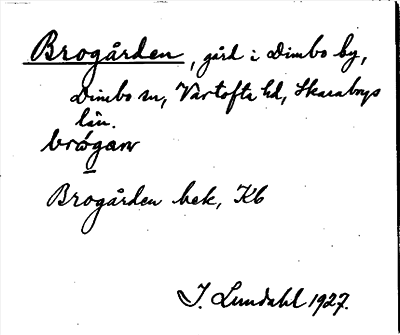 Brogården, gård i Dimbo by,
Dimbo sn, Vartofta hd, Skaraborgs
län.
brógaṉ
Brogården hek, Kb
I. Lundahl 1927.